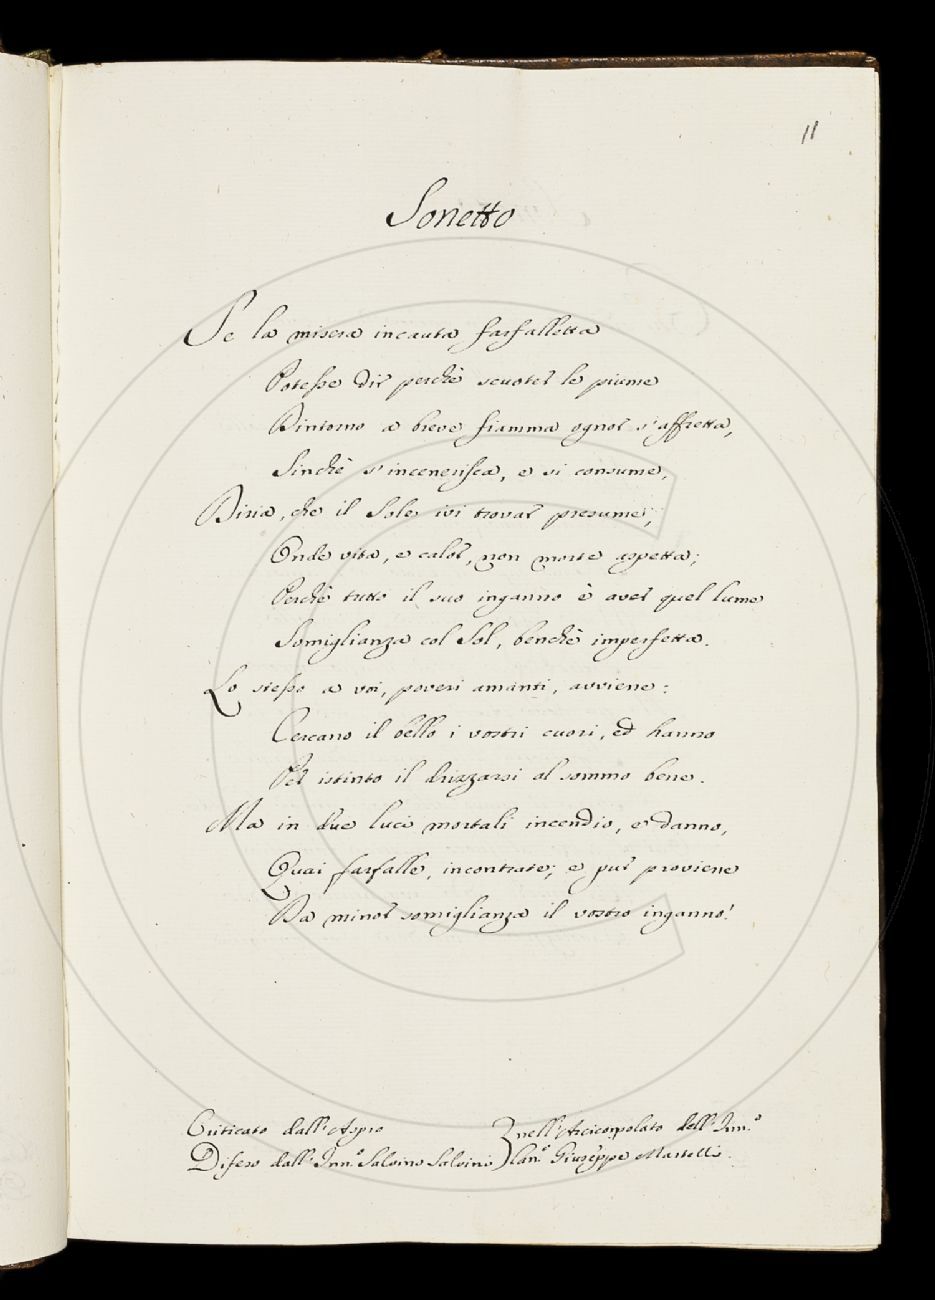 11
Sonetto
Se la misera incauta farfalletta
Potesse dir perchè scuoter le piume
Dintorno a breve fiamma ognor s'affretta,
Sinchè s'incenerisca, e si consume,
Diria, che il Sole ivi trovar presume,
Onde vita, e calor, non morte aspetta;
Perchè tutto il suo inganno è aver quel lume
Somiglianza col Sol, benchè imperfetta.
Lo stesso a voi, poveri amanti, avviene:
Cercano il bello i vostri cuori, ed hanno
Per istinto il drizzarsi al sommo bene.
Ma in due luci mortali incendio, e danno,
Quai farfalle, incontrate; e pur proviene
Da minor somiglianza il vostro inganno!
Criticato dall'Aspro
Difeso dall'Inn.º Salvino Salvini
nell'Arciconsolato dell'Inn.º
Can.º Giuseppe Martelli.